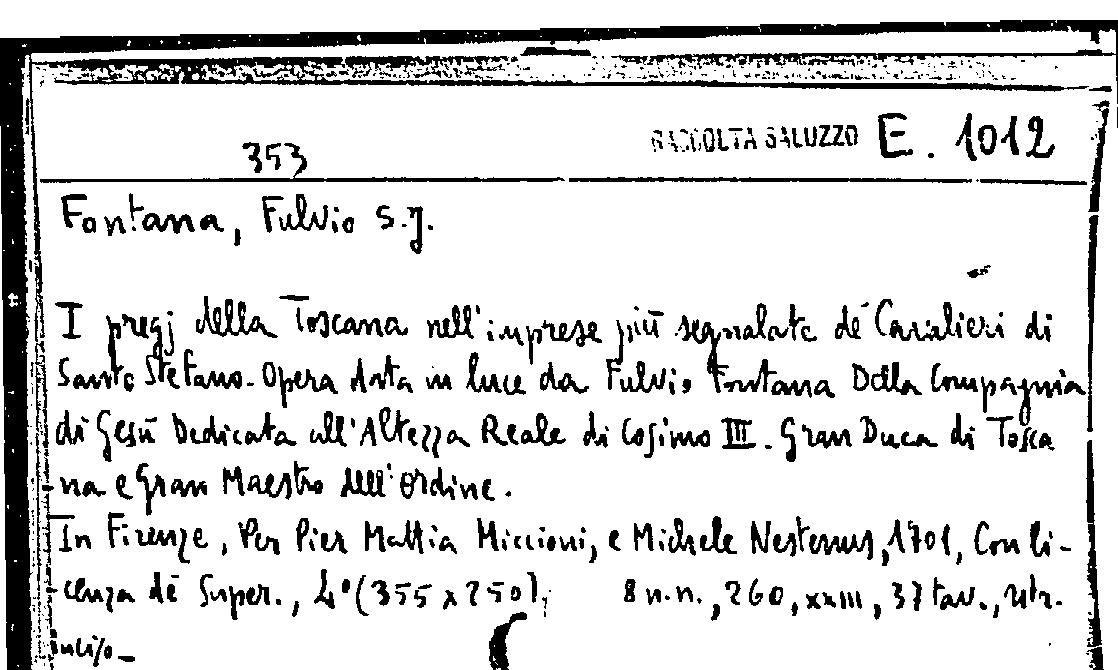 RACCOLTA SALUZZO E. 1012
353
Fontana, Fulvio S.J.
I pregj della Toscana nell'imprese più segnalate dé Cavalieri di
Santo Stefano. Opera data in luce da Fulvio Fontana Della Compagnia
di Gesù Dedicata all'Altezza Reale di Cosimo III. Gran Duca di Tosca
na e Gran Maestro dell'Ordine.
In Firenze, Per Pier Mattia Miccioni, e Michele Nestenus, 1701, Con li-
cenza dé Super., 4° (355 x 250), 8 n.n., 260, XXIII, 37 tav., ritr.
inciso_